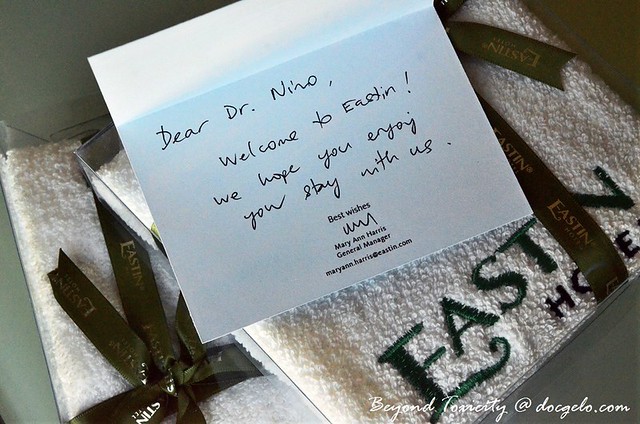 Dear Dr. Nino,
Welcome to Eastin!
We hope you enjoy
your stay with us.
Best wishes
Mary Ann Harris
General Manager
maryann.harris@eastin.com
EASTIN
EASTIN
EASTIN
EASTIN
EASTIN
EASTIN
HOTEL
Beyond Toxicity @ docgelo.com